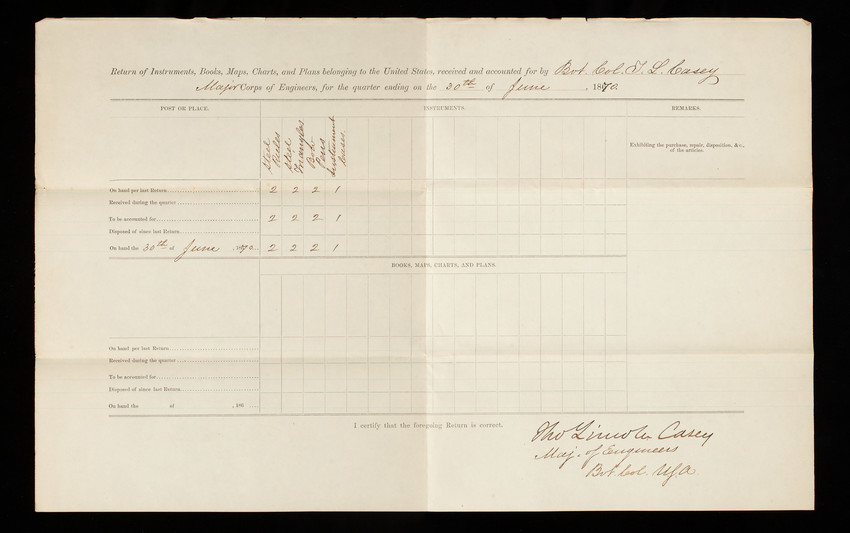 Return of Instruments, Books, Maps, Charts, and Plans belonging to the United States, received and accounted for by Bvt. Col. T. L. Casey
Major Corps of Engineers, for the quarter ending on the 30th of June, 1870.
POST OR PLACE. INSTRUMENTS. REMARKS.
Steel Rules
Steel Triangles
Bow Pens
Instrument Cases
Exhibiting the purchase, repair, disposition, &c.,
of the articles.
On hand per last Return 2 2 2 1
Received during the quarter
To be accounted for 2 2 2 1
Disposed of since last Return
On hand the 30th of June, 1870. 2 2 2 1
BOOKS, MAPS, CHARTS, AND PLANS.
On hand per last Return
Received during the quarter
To be accounted for
Disposed of since last Return
On hand the of , 186
I certify that the foregoing Return is correct.
Tho Lincoln Casey
Maj. of Engineers
Bvt Col. U.S.A